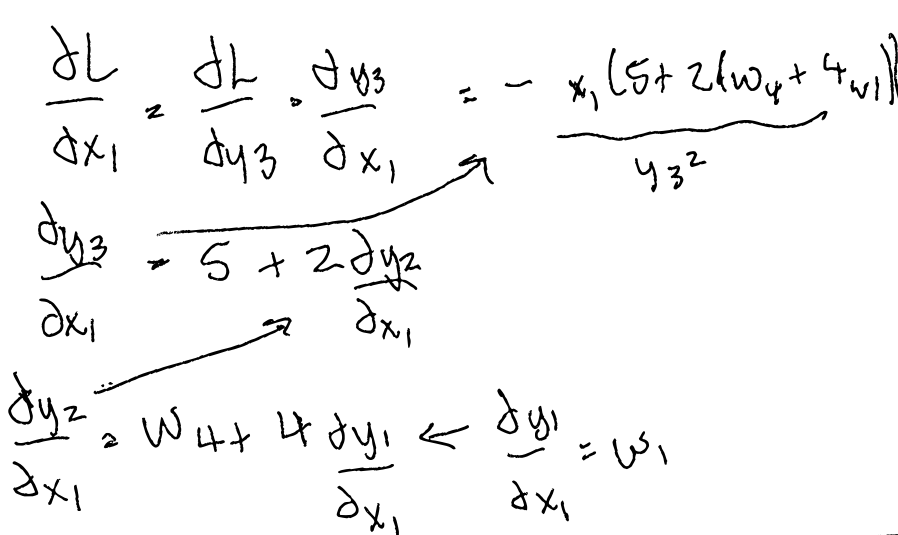 ∂L/∂x₁ = ∂L/∂y₃ · ∂y₃/∂x₁ = - x₁(5+2(w₄+4w₁))/y₃²
∂y₃/∂x₁ = 5 + 2 ∂y₂/∂x₁
∂y₂/∂x₁ = W₄ + 4 ∂y₁/∂x₁ ← ∂y₁/∂x₁ = w₁